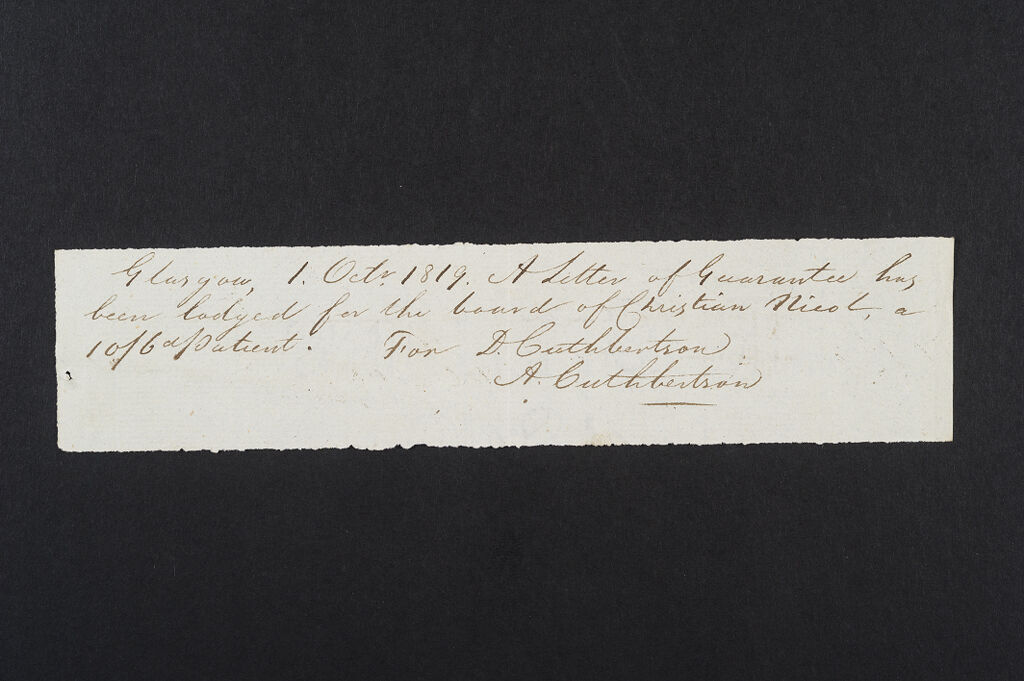 Glasgow, 1. Octr. 1819. A Letter of Guarantee has
been lodged for the board of Christian Nicol, a
10/6d Patient. For D. Cuthbertson
A. Cuthbertson